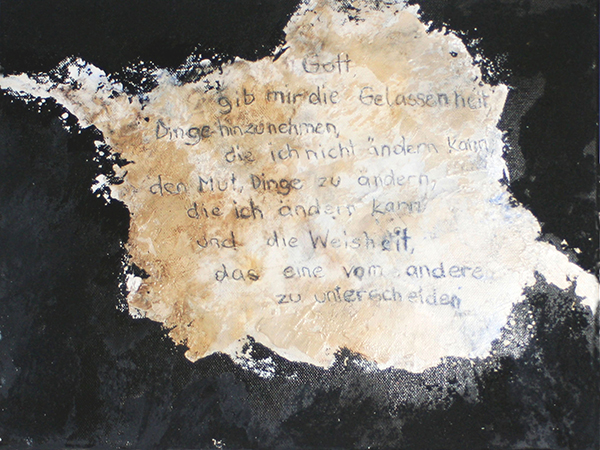 Gott
gib mir die Gelassenheit,
Dinge hinzunehmen,
die ich nicht ändern kann,
den Mut, Dinge zu ändern,
die ich ändern kann
und die Weisheit,
das eine vom andere
zu unterscheiden